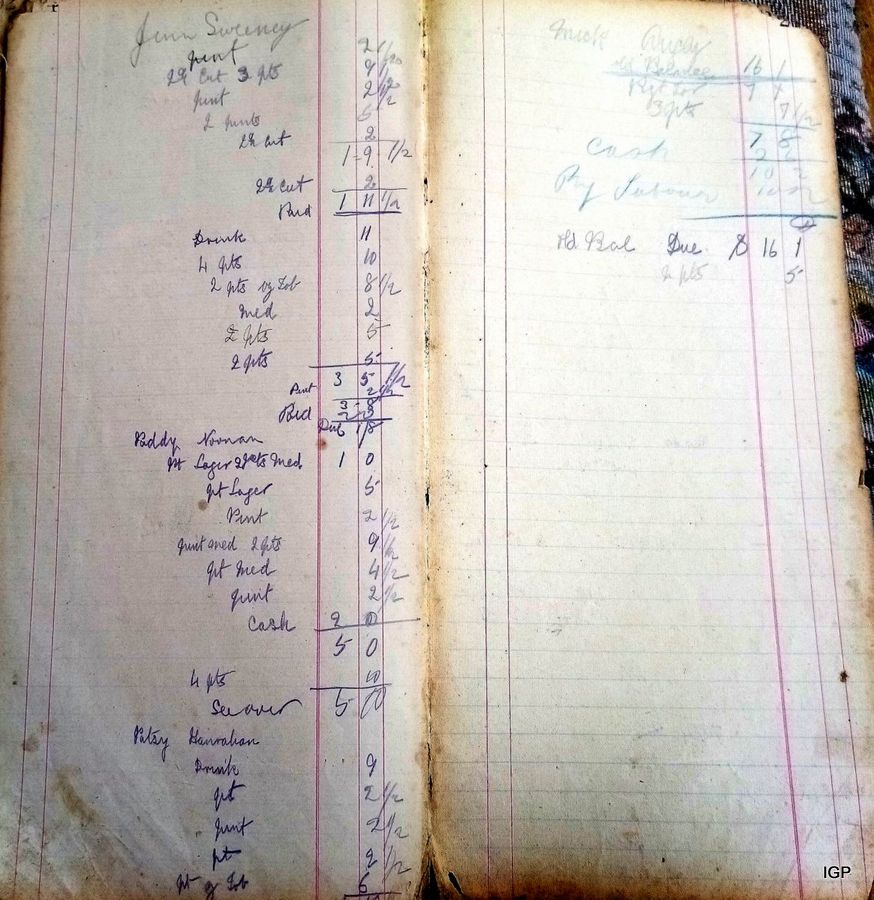 Sweeney
pint 2 1/2
2d Cut 3 pts 9 1/2
pint 2 1/2
2 pints 5
2d Cut 2
1-9 1/2
2d Cut 2
Paid 1 11 1/2
Drink 11
4 pts 10
2 pts oz Tob 8 1/2
med 2
2 pts 5
2 pts 5
3 5 1/2
Pint 2 1/2
3-8
Paid
Due 1/8
Paddy Noonan
Pt Lager 2 pts Med 1 0
pt Lager 5
Pint 2 1/2
pint med 2 pts 9 1/2
pt Med 4 1/2
pint 2 1/2
Cash 2 0
5 0
4 pts 10
See over 5 10
Patsy Hanrahan
Drink 9
pt 2 1/2
pint 2 1/2
pt 2 1/2
pt Tob 6
Mick
Old Balance 16 1
3 pts 7 1/2
Cash
By Labour
Old Bal Due 8 16 1
2 pts 5
IGP